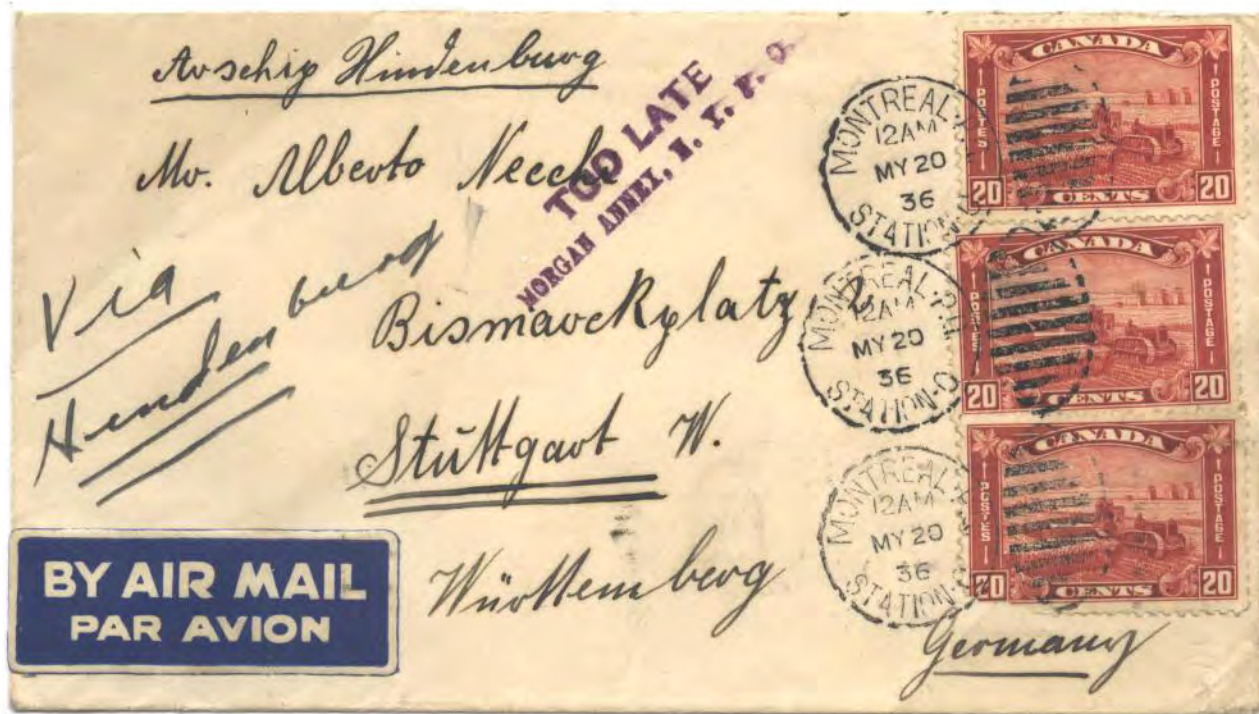 Arschip Hindenburg
Mr. Alberto Necchi
TOO LATE
MORGAN ANNEX, N. Y. P. O.
Via
Hendenburg
Bismarckplatz, 2
Stuttgart W.
Württemberg
Germany
BY AIR MAIL
PAR AVION
MONTREAL P.Q.
12AM
MY 20
36
STATION
MONTREAL P.Q.
12AM
MY 20
36
STATION
MONTREAL P.Q.
12AM
MY 20
36
STATION
CANADA
POSTES
POSTAGE
20 CENTS 20
CANADA
POSTES
POSTAGE
20 CENTS 20
CANADA
POSTES
POSTAGE
20 CENTS 20